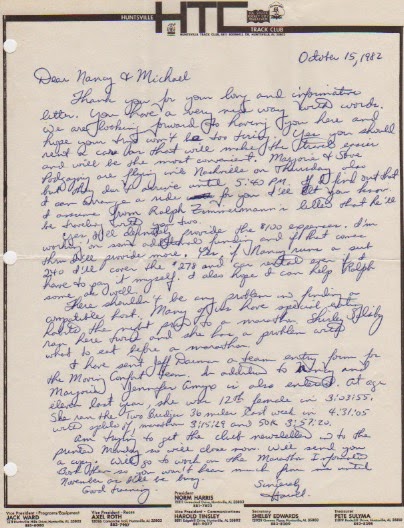 HUNTSVILLE HTC TRACK CLUB
HUNTSVILLE TRACK CLUB
October 15, 1982
Dear Nancy & Michael
Thank you for your long and informative
letter. You have a very nice way with words.
We are looking forward to having you here and
hope your trip won't be too tiring. Yes you should
rent a car as that will make the travel easier
and will be the most convenient. Marjorie & Steve
Podgajny are flying into Nashville on Thursday also
but they don't arrive until 5:40 PM. If I find out that
I can arrange a ride for you I'll let you know
I assume from Ralph Zimmermann's letter that he'll
be traveling with you two.
I'll definitely provide the $100 expenses. I'm
working on some additional funding and if that comes
thru I'll provide more. If Nancy runs a sub
2:40 I'll cover the $278 and car rental even if I
have to pay it myself. I also hope I can help Ralph
some as well.
There shouldn't be any problem in finding a
compatible host. Many of us have special
habits the night prior to a marathon. Shirley
ran here twice and she has a problem with
what to eat before a marathon.
I have sent a team entry form for
the Moving Comfort team. In addition to Nancy and
Marjorie, Jennifer Amyx is also entered. At age
eleven last year, she was 12th female in 3:03:55.
She ran the Two Bridges 36 miler last week in 4:31:05
with splits of marathon 3:15:29 and 50K 3:57:20.
Am trying to get the club newsletter to the
printer Monday so will close now. Will send you
a copy. Will go to work on the Marathon
so you won't hear much from me until
November as I'll be busy
Good running
Sincerely
Harold
President
NORM HARRIS
Vice President - Programs/Equipment
JACK WARD
Vice President - Races
AXEL ROTH
Vice President - Communications
HAROLD TINSLEY
Secretary
SHELBY EDWARDS
Treasurer
PETE SULYMA